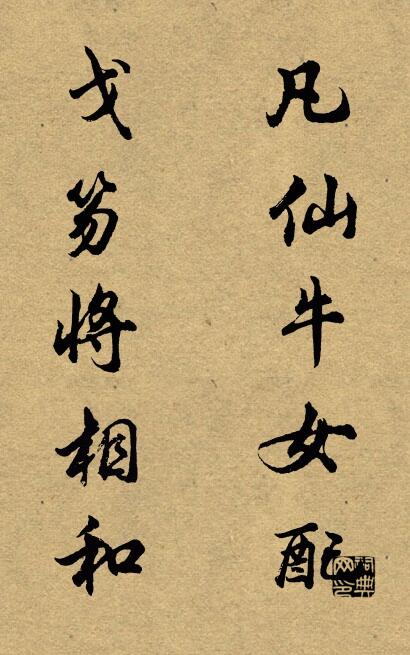 凡仙牛女配
戈笏将相和
词典网印